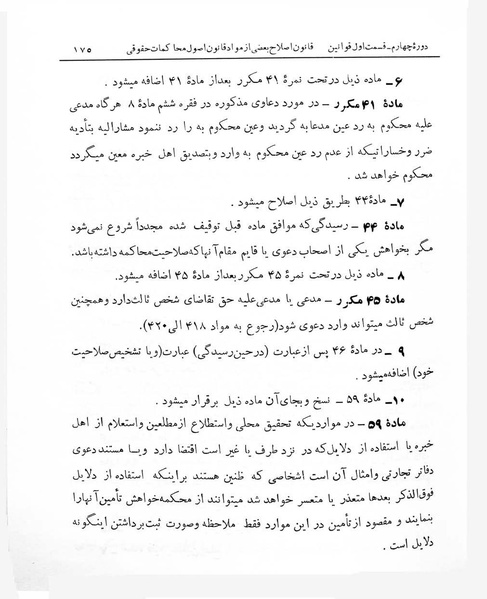 دورهٔ چهارم ـ قسمت اول قوانین قانون اصلاح بعضی از مواد قانون اصول محاکمات حقوقی ۱۷۵
۶ـ ماده ذیل در تحت نمرهٔ ۴۱ مکرر بعد از مادهٔ ۴۱ اضافه میشود .
مادهٔ ۴۱ مکرر ـ در مورد دعاوی مذکوره در فقره ششم مادهٔ ۸ هرگاه مدعی
علیه محکوم به رد عین مدعا به گردید وعین محکوم به را رد ننمود مشارالیه بتأدیه
ضرر وخساراتیکه از عدم رد عین محکوم به وارد وبتصدیق اهل خبره معین میگردد
محکوم خواهد شد .
۷ـ مادهٔ ۴۴ بطریق ذیل اصلاح میشود .
مادهٔ ۴۴ ـ رسیدگی که موافق ماده قبل توقیف شده مجدداً شروع نمی‌شود
مگر بخواهش یکی از اصحاب دعوی یا قایم مقام آنها که صلاحیت محاکمه داشته باشد.
۸ ـ ماده ذیل در تحت نمرهٔ ۴۵ مکرر بعد از مادهٔ ۴۵ اضافه میشود.
مادهٔ ۴۵ مکرر ـ مدعی یا مدعی علیه حق تقاضای شخص ثالث دارد وهمچنین
شخص ثالث میتواند وارد دعوی شود (رجوع به مواد ۴۱۸ الی ۴۲۰).
۹ ـ در مادهٔ ۴۶ پس از عبارت (در حین رسیدگی) عبارت (و با تشخیص صلاحیت
خود) اضافه میشود .
۱۰ـ مادهٔ ۵۹ ـ نسخ و بجای آن ماده ذیل برقرار میشود .
مادهٔ ۵۹ ـ در مواردیکه تحقیق محلی واستطلاع از مطلعین واستعلام از اهل
خبره یا استفاده از دلایل که در نزد طرف یا غیر است اقتضا دارد ویا مستند دعوی
دفاتر تجارتی وامثال آن است اشخاصی که ظنین هستند براینکه استفاده از دلایل
فوق‌الذکر بعدها متعذر یا متعسر خواهد شد میتوانند از محکمه خواهش تأمین آنها را
بنمایند و مقصود از تأمین در این موارد فقط ملاحظه وصورت ثبت برداشتن اینگونه
دلایل است .